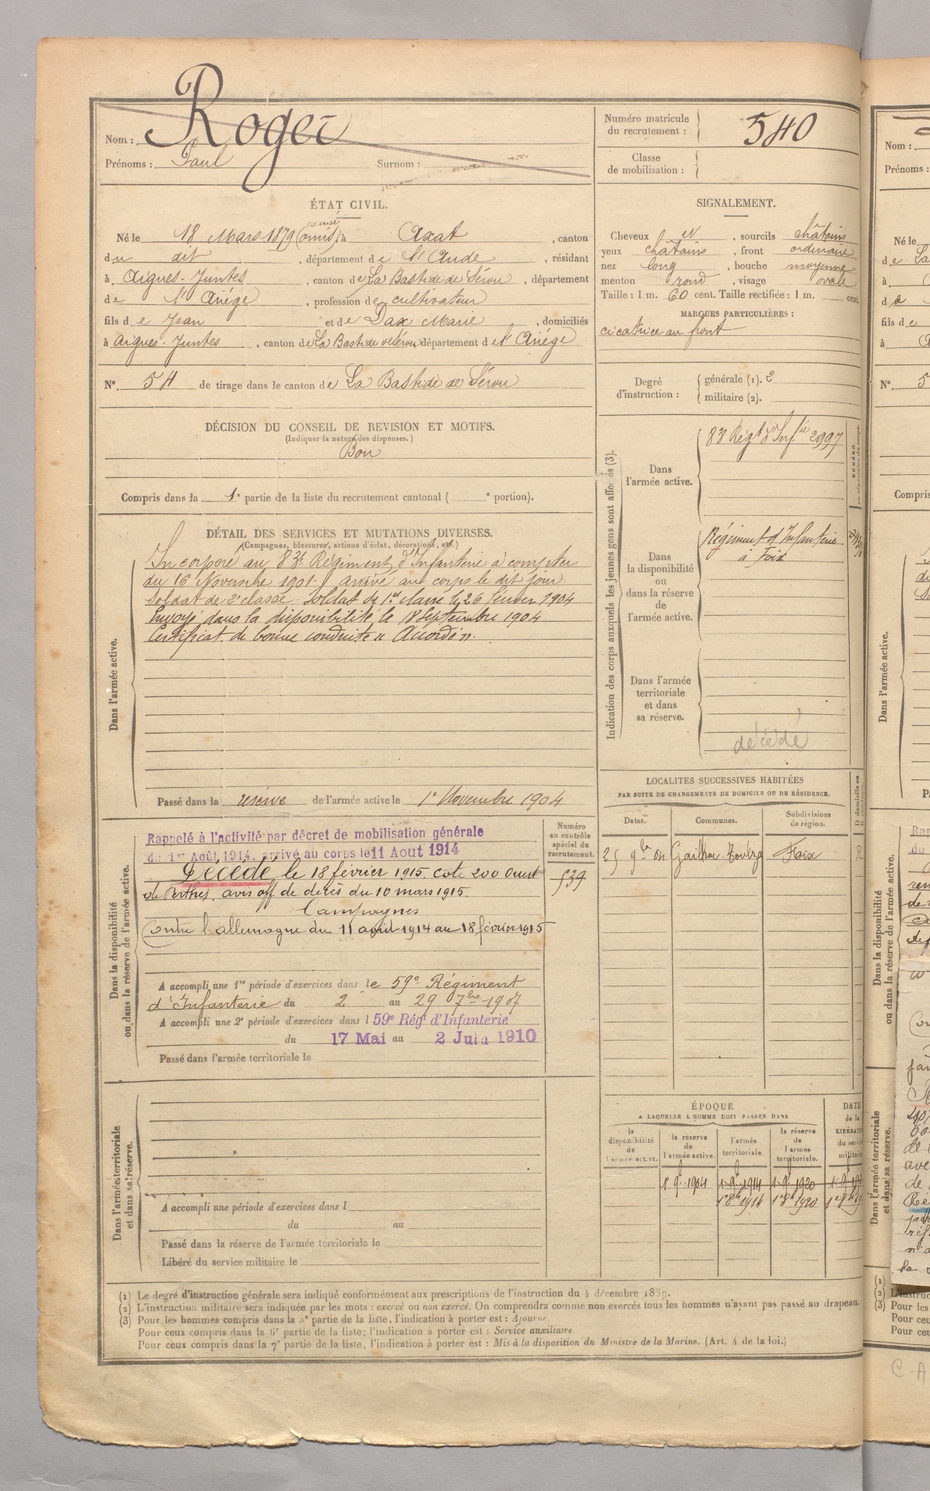 Nom : Roger
Prénoms : Paul Surnom :
Numéro matricule du recrutement : 540
Classe de mobilisation :
ÉTAT CIVIL.
Né le 18 Mars 1879 (omis excusé) à Axat, canton
du dit, département de l'Aude, résidant
à Aigues-Juntes, canton de La Bastide de Sérou, département
de l'Ariège, profession de cultivateur
fils de Jean et de Dax Marie, domiciliés
à Aigues-Juntes, canton de La Bastide de Sérou département de l'Ariège
N° 54 de tirage dans le canton de La Bastide de Sérou
SIGNALEMENT.
Cheveux et, sourcils châtains
yeux châtains, front ordinaire
nez long, bouche moyenne
menton rond, visage ovale
Taille : 1 m. 60 cent. Taille rectifiée : 1 m. cent.
MARQUES PARTICULIÈRES :
cicatrice au front
Degré d'instruction :
générale (1). 2
militaire (2).
DÉCISION DU CONSEIL DE REVISION ET MOTIFS.
(Indiquer la nature des dispenses.)
Bon
Compris dans la 1e partie de la liste du recrutement cantonal ( e portion).
DÉTAIL DES SERVICES ET MUTATIONS DIVERSES.
(Campagnes, blessures, actions d'éclat, décorations, etc.)
Dans l'armée active.
Incorporé au 83e Régiment d'Infanterie à compter
du 16 Novembre 1901. arrivé au corps le dit jour
soldat de 2e classe. soldat de 1re classe le 26 février 1904
Envoyé dans la disponibilité le 18 Septembre 1904
Certificat de bonne conduite "Accordé".
Passé dans la réserve de l'armée active le 1e Novembre 1904
Indication des corps auxquels les jeunes gens sont affectés (3).
Dans l'armée active.
83e Régt d'Infie 2997
Dans la disponibilité ou dans la réserve de l'armée active.
Régiment d'Infanterie
à Foix
Dans l'armée territoriale et dans sa réserve.
décédé
LOCALITÉS SUCCESSIVES HABITÉES
PAR SUITE DE CHANGEMENTS DE DOMICILE OU DE RÉSIDENCE.
Dates. Communes. Subdivisions de région.
25 9bre 04 Foix R
Dans la disponibilité ou dans la réserve de l'armée active.
Numéro au contrôle spécial du recrutement.
539
Rappelé à l'activité par décret de mobilisation générale
du 1er Août 1914. arrivé au corps le 11 Aout 1914
Décédé le 18 février 1915 cote 200 Ouest
de Perthes. avis off. de décès du 10 mars 1915.
Campagnes
Contre l'allemagne du 11 août 1914 au 18 février 1915
A accompli une 1re période d'exercices dans le 59e Régiment
d'Infanterie du 2 au 29 7bre 1907
A accompli une 2e période d'exercices dans l 59e Rég. d'Infanterie
du 17 Mai au 2 Juin 1910
Passé dans l'armée territoriale le
Dans l'armée territoriale et dans sa réserve.
A accompli une période d'exercices dans l
du au
Passé dans la réserve de l'armée territoriale le
Libéré du service militaire le
ÉPOQUE
A LAQUELLE L'HOMME DOIT PASSER DANS
la disponibilité de l'armée active. la réserve de l'armée active. l'armée territoriale. la réserve de l'armée territoriale. DATE de la
1 9bre 1904
(1) Le degré d'instruction générale sera indiqué conformément aux prescriptions de l'instruction du 4 décembre 1889.
(2) L'instruction militaire sera indiquée par les mots : exercé ou non exercé. On comprendra comme non exercés tous les hommes n'ayant pas passé au drapeau.
(3) Pour les hommes compris dans la 5e partie de la liste, l'indication à porter est : Ajourné.
Pour ceux compris dans la 6e partie de la liste; l'indication à porter est : Service auxiliaire.
Pour ceux compris dans la 7e partie de la liste, l'indication à porter est : Mis à la disposition du Ministre de la Marine. (Art. 4 de la loi.)